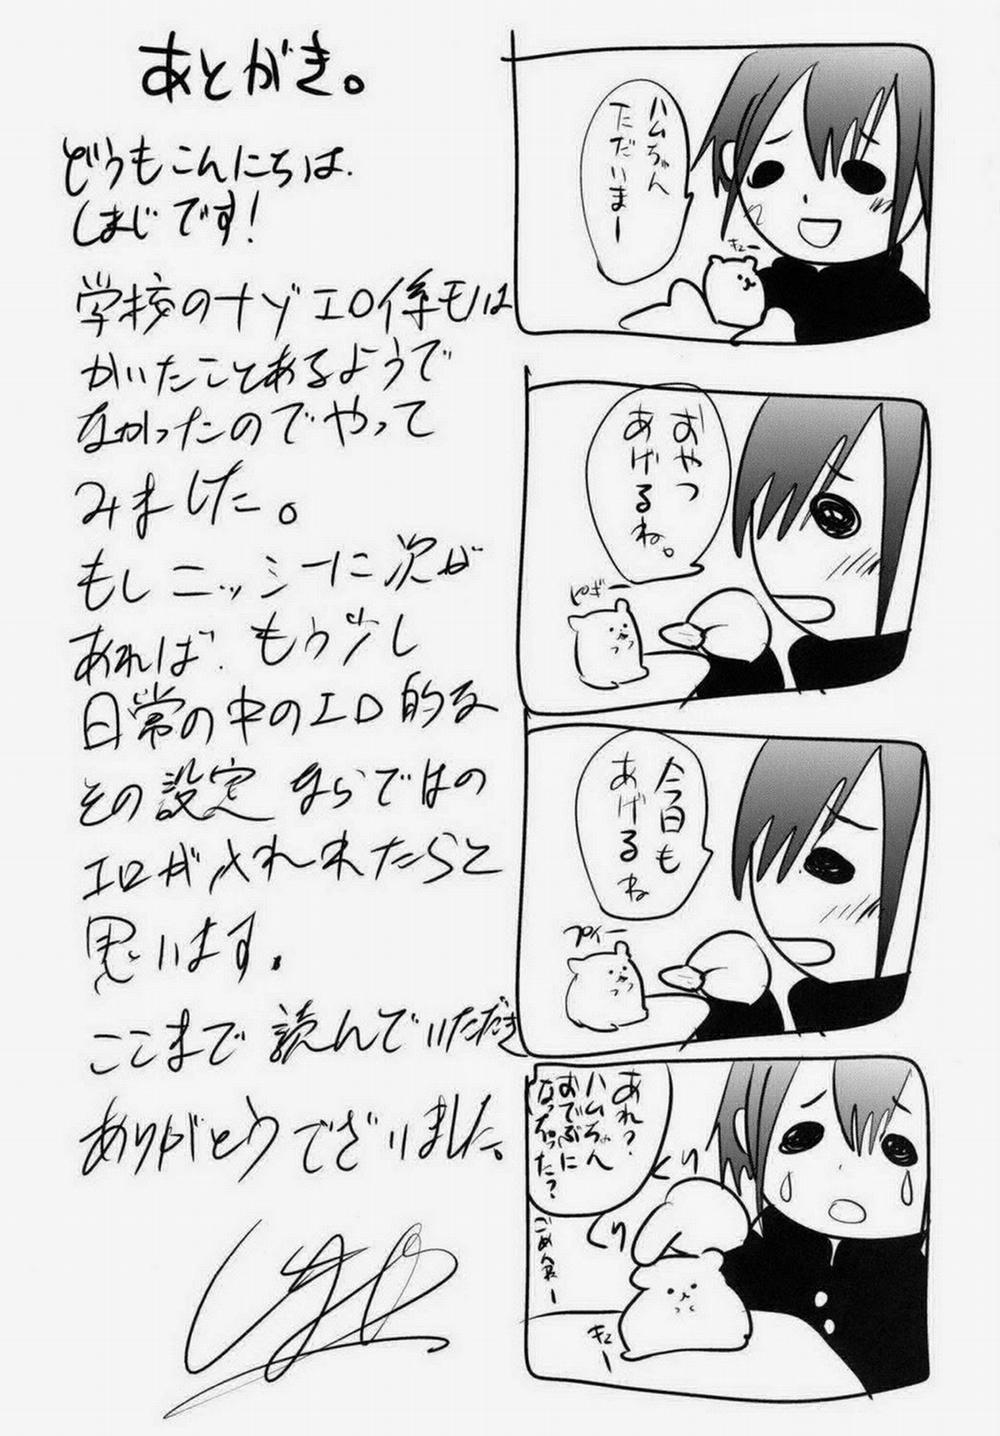 あとがき。
どうもこんにちは、
しまじです!
学校のナゾエロ係モノは
かいたことあるようで
なかったのでやって
みました。
もしニッシーに次が
あれば、もう少し
日常の中のエロ的な
その設定ならではの
エロが入れれたらと
思います。
ここまで読んでいただき
ありがとうございました。
ハムちゃん
ただいまー
キュー
おやつ
あげるね。
ピギー
今日も
あげるね
プイー
あれ?
ハムちゃん
おでぶに
なっちゃった?
くり
くり
ごめんねー
キュー